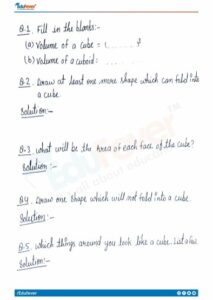 EduFever
Q.1. Fill in the blanks:-
(a) Volume of a cube = (......)³
(b) Volume of a cuboid: .... .....
Q.2. Draw at least one more shape which can fold into
a cube.
Solution:-
Q.3 what will be the area of each face of the cube?
Solution:-
EduFever
all about education
Q.4. Draw one shape which will not fold into a cube.
Solutions:-
Q.5. which things around you look like a cube. List a few
Solution:-
/Edufever